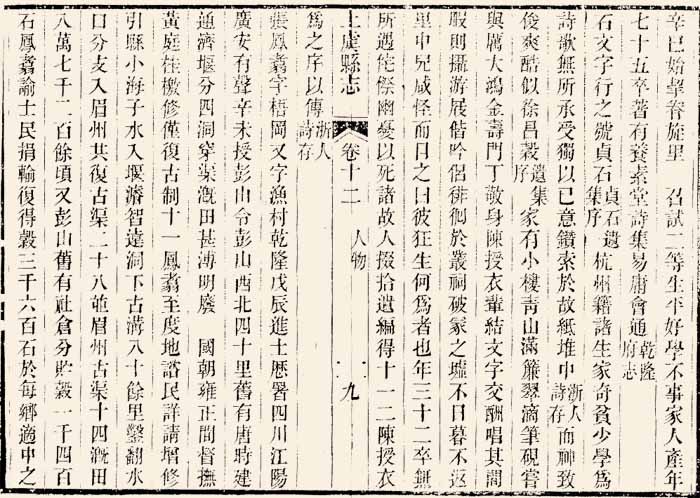 辛巳始挈眷旋里　召試二等生平好學不事家人產年
七十五卒著有養素堂詩集易庸會通乾隆府志
石文字行之號貞石貞石遺集序杭州籍諸生家奇貧少學爲
詩歌無所承受獨以已意鑽索於故紙堆中浙人詩存而神致
俊爽酷似徐昌穀遺集序家有小樓靑山滿簾翠滴筆硯嘗
與厲大鴻金壽門丁敬身陳授衣輩結文字交酬唱其間
暇則攝游屐偕吟侶徘徊於叢祠破冢之墟不日暮不返
里中兒咸怪而目之曰彼狂生何爲者也年三十二卒無
所遇侘傺幽憂以死諸故人掇拾遺編得十一二陳授衣
上虞縣志　卷十二　人物　九
爲之序以傳浙人詩存
張鳳翥字梧岡又字漁村乾隆戊辰進士歷署四川江陽
廣安有聲辛未授彭山令彭山西北四十里舊有唐時建
通濟堰分四洞穿渠漑田甚溥明廢　國朝雍正間督撫
黃庭桂檄修僅復古制十一鳳翥至度地諮民詳請增修
引縣小海子水入堰濬智遠洞下古溝八十餘里鑿翻水
口分支入眉州共復古渠二十八並眉州古渠十四漑田
八萬七千二百餘頃又彭山舊有社倉分貯穀一千四百
石鳳翥諭士民捐輸復得穀三千六百石於每鄉適中之